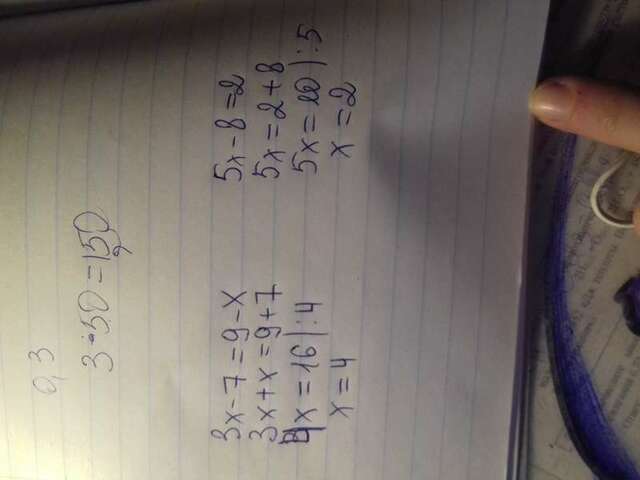 0,3
3·50=150
3x-7=9-x
3x+x=9+7
4x=16|:4
x=4
5x-8=2
5x=2+8
5x=10|:5
x=2